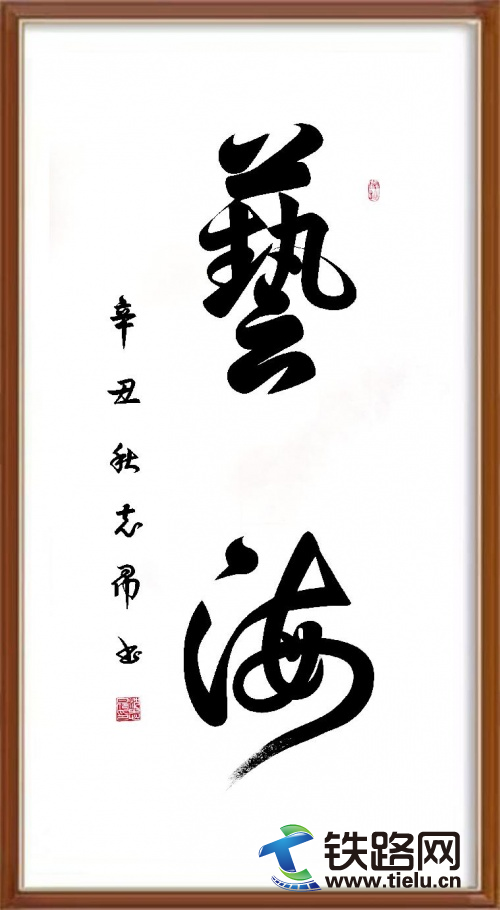 藝海
辛丑秋志书
铁路网
www.tielu.cn